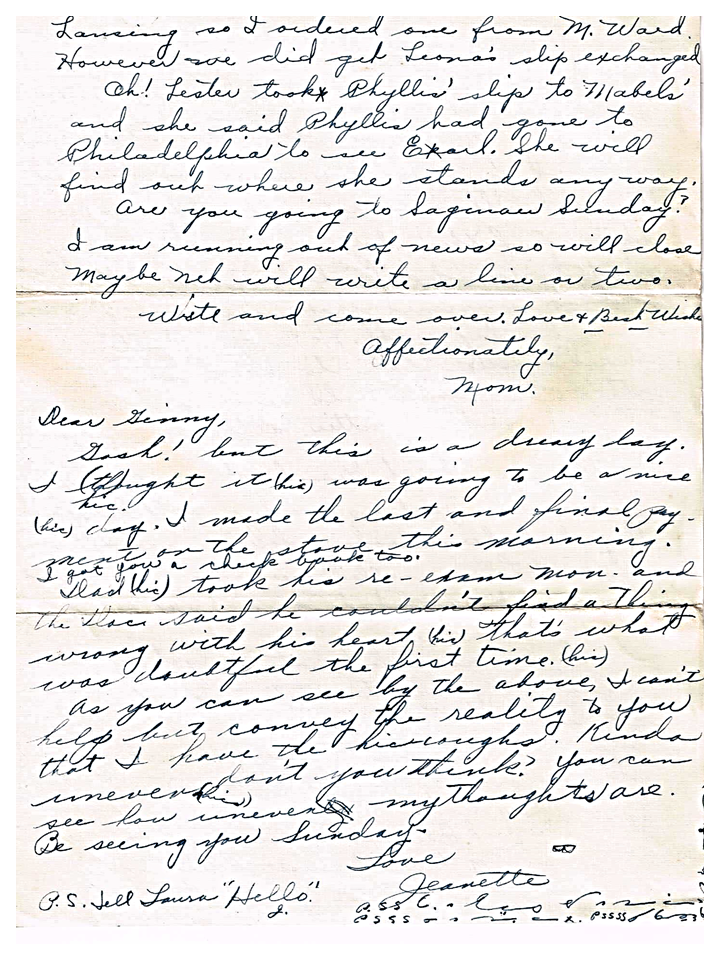 Lansing so I ordered one from M. Ward.
However we did get Leona's slip exchanged
Oh! Lester took Phyllis' slip to Mabels'
and she said Phyllis had gone to
Philadelphia to see Earl. She will
find out where she stands anyway.
Are you going to Saginaw Sunday?
I am running out of news so will close
Maybe Net will write a line or two.
Write and come over. Love & Best Wishes
Affectionately,
Mom.
Dear Ginny,
Gosh! but this is a dreary day.
I thought it (hic) was going to be a nice
hic.
(hic) day. I made the last and final pay-
ment on the stove this morning.
I got you a check book too.
Dad (hic) took his re-exam Mon. and
the Docs said he couldn't find a thing
wrong with his heart (hic) that's what
was doubtful the first time. (hic)
As you can see by the above, I can't
help but convey the reality to you
that I have the hiccoughs. Kinda
uneven don't you think? You can
see how uneven (hic) my thoughts are.
Be seeing you Sunday-
Love
Jeanette
P.S. Tell Laura "Hello."
J.
P.SS
PSSS PSSSS